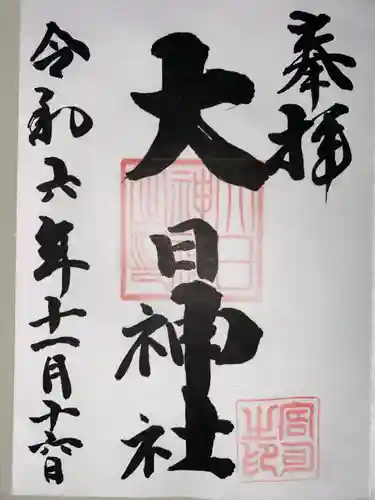 奉拝
大日神社
令和六年十一月十六日
宮司之印